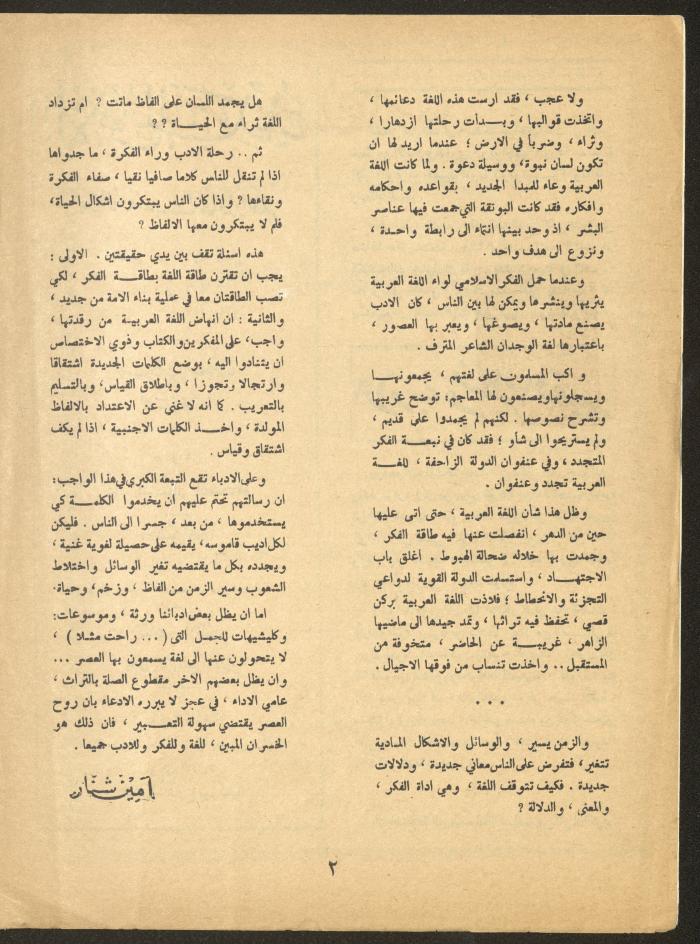 ولا عجب ، فقد ارست هذه اللغة دعائمها ،
واتخذت قوالبها ، وبــدأت رحلتها ازدهارا ،
وثراء ، وضرباً في الارض ؛ عندما اريد لها ان
تكون لسان نبوة، ووسيلة دعوة . ولما كانت اللغة
العربية وعاء للمبدأ الجديد ، بقواعده واحكامه
وافكاره فقد كانت البوتقة التي جمعت فيها عناصر
البشر ، اذ وحد بينها انتماء الى رابطة واحـدة ،
ونزوع الى هدف واحد .
وعندما حمل الفكر الاسلامي لواء اللغة العربية
يثريها وينشرها ويمكن لها بين الناس ، كان الادب
يصنع مادتها ، ويصوغها ، ويعبر بها العصور ،
باعتبارها لغة الوجدان الشاعر المترف .
و اكب المسلمون على لغتهم ، يجمعونهـــا
ويسجلونها ويصنعون لها المعاجم: توضح غريبها
وتشرح نصوصها . لكنهم لم يجمدوا على قديم ،
ولم يستريحوا الى شأو ؛ فقد كان في نبعـــة الفكر
المتجدد ، وفي عنفوان الدولة الزاحفة ، للغـــة
العربية تجدد وعنفوان .
وظل هذا شأن اللغة العربية ، حتى اتى عليها
حين من الدهر ، انفصلت عنها فيه طاقة الفكر ،
وجمدت بها خلاله ضحالة الهبوط . اغلق باب
الاجتهــاد ، واستسلمت الدولة القوية لدواعي
التجزئة والانحطاط ؛ فلاذت اللغة العربية بركن
قصي ، تحفظ فيه تراثها ، وتمد جيدها الى ماضيها
الزاهر ، غريبـــة عن الحاضر ، متخوفة من
المستقبل .. واخذت تنساب من فوقها الاجيال .
• • •
والزمن يسير ، والوسائل والاشكال المـادية
تتغير ، فتفرض على الناس معاني جديدة ، ودلالات
جديدة . فكيف تتوقف اللغة ، وهي اداة الفكر ،
والمعنى ، والدلالة ?
هل يجمد اللسان على الفاظ ماتت ? ام تزداد
اللغة ثراء مع الحيـــاة ??
ثم .. رحلة الادب وراء الفكرة ، ما جدواها
اذا لم تنقل للناس كلاما صافيا نقيا ، صفاء الفكرة
ونقاءها ? واذا كان الناس يبتكرون اشكال الحياة،
فلم لا يبتكرون معها الالفاظ ?
هذه اسئلة تقف بين يدي حقيقتين . الاولى :
يجب ان تقترن طاقة اللغة بطاقـــة الفكر ، لكي
تصب الطاقتان معا في عملية بناء الامة من جديد ،
والثانية : ان انهاض اللغة العربيـة من رقدتها ،
واجب، على المفكرين والكتاب وذوي الاختصاص
ان يتنادوا اليه ، بوضع الكلمات الجديدة اشتقاقا
وارتجالا وتجوزا ، وباطلاق القياس، وبالتسليم
بالتعريب . كما انه لا غنى عن الاعتداد بالالفاظ
المولدة ، واخــذ الكلمات الاجنبية ، اذا لم يكف
اشتقاق وقياس .
وعلى الادباء تقع التبعة الكبرى في هذا الواجب:
ان رسالتهم تحتم عليهم ان يخدموا الكلمـة كي
يستخدموها ، من بعد ، جسرا الى الناس . فليكن
لكل اديب قاموسه، يقيمه على حصيلة لغوية غنية ،
ويجدده بكل ما يقتضيه تغير الوسائل واختلاط
الشعوب وسير الزمن من الفاظ ، وزخم، وحياة.
اما ان يظل بعض ادبائنا ورثة ، وموسوعات:
وكليشيهات للجمل التى ( ... راحت مثـلا ) ،
لا يتحولون عنها الى لغة يسمعون بها العصر ...
وان يظل بعضهم الاخر مقطوع الصلة بالتراث ،
عامي الاداء ، في عجز لا يبرره الادعاء بان روح
العصر يقتضي سهولة التعـــبير ، فان ذلك هو
الخسران المبين ، للغة وللفكر وللادب جميعا .
امين شنار
٢